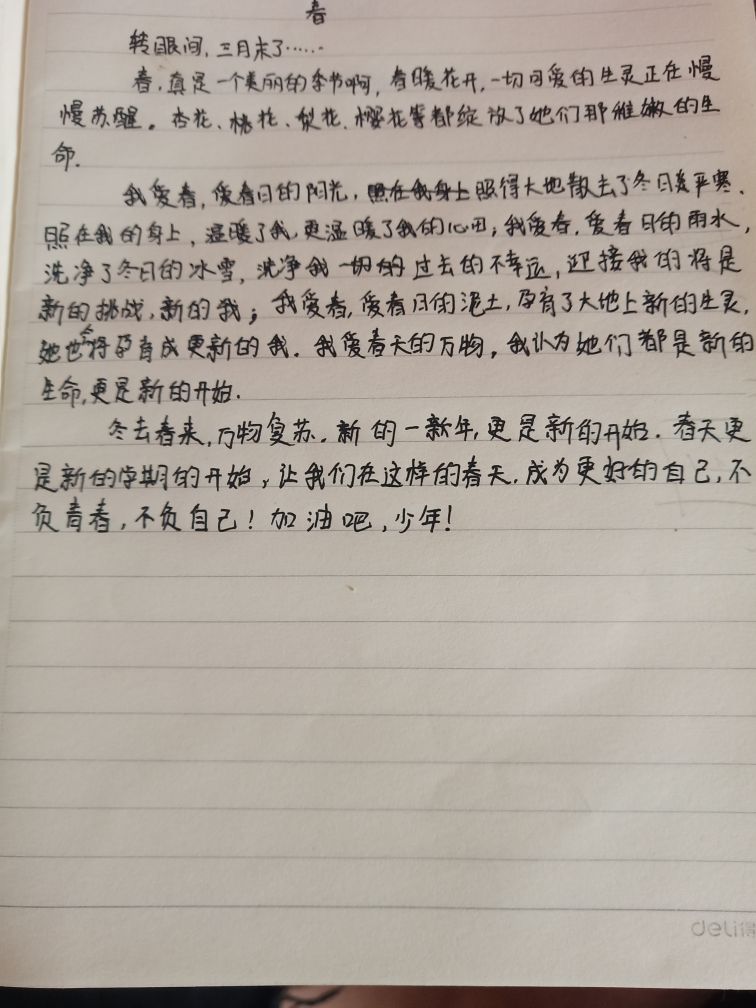 春
转眼间,三月末了……
春,真是一个美丽的季节啊,春暖花开,一切可爱的生灵正在慢
慢苏醒。杏花、桃花、梨花、樱花等都绽放了她们那稚嫩的生
命.
我爱春,爱春日的阳光,照在我身上照得大地散去了冬日严寒、
照在我的身上,温暖了我,更温暖了我的心田;我爱春,爱春日的雨水,
洗净了冬日的冰雪,洗净我一切的过去的不幸运,迎接我的将是
新的挑战,新的我;我爱春,爱春日的泥土,孕育了大地上新的生灵,
她也会将孕育成更新的我.我爱春天的万物,我认为她们都是新的
生命,更是新的开始.
冬去春来,万物复苏.新的一新年,更是新的开始.春天更
是新的学期的开始,让我们在这样的春天.成为更好的自己,不
负青春,不负自己!加油吧,少年!
deli得